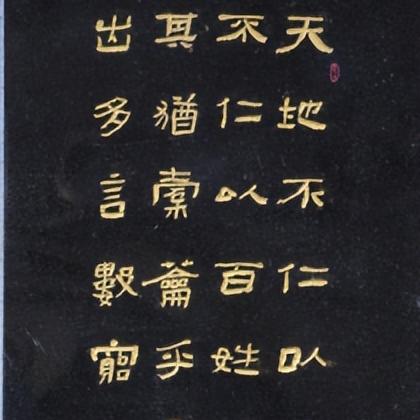 天地不仁以
不仁以百姓
其猶橐籥乎
出多言數窮